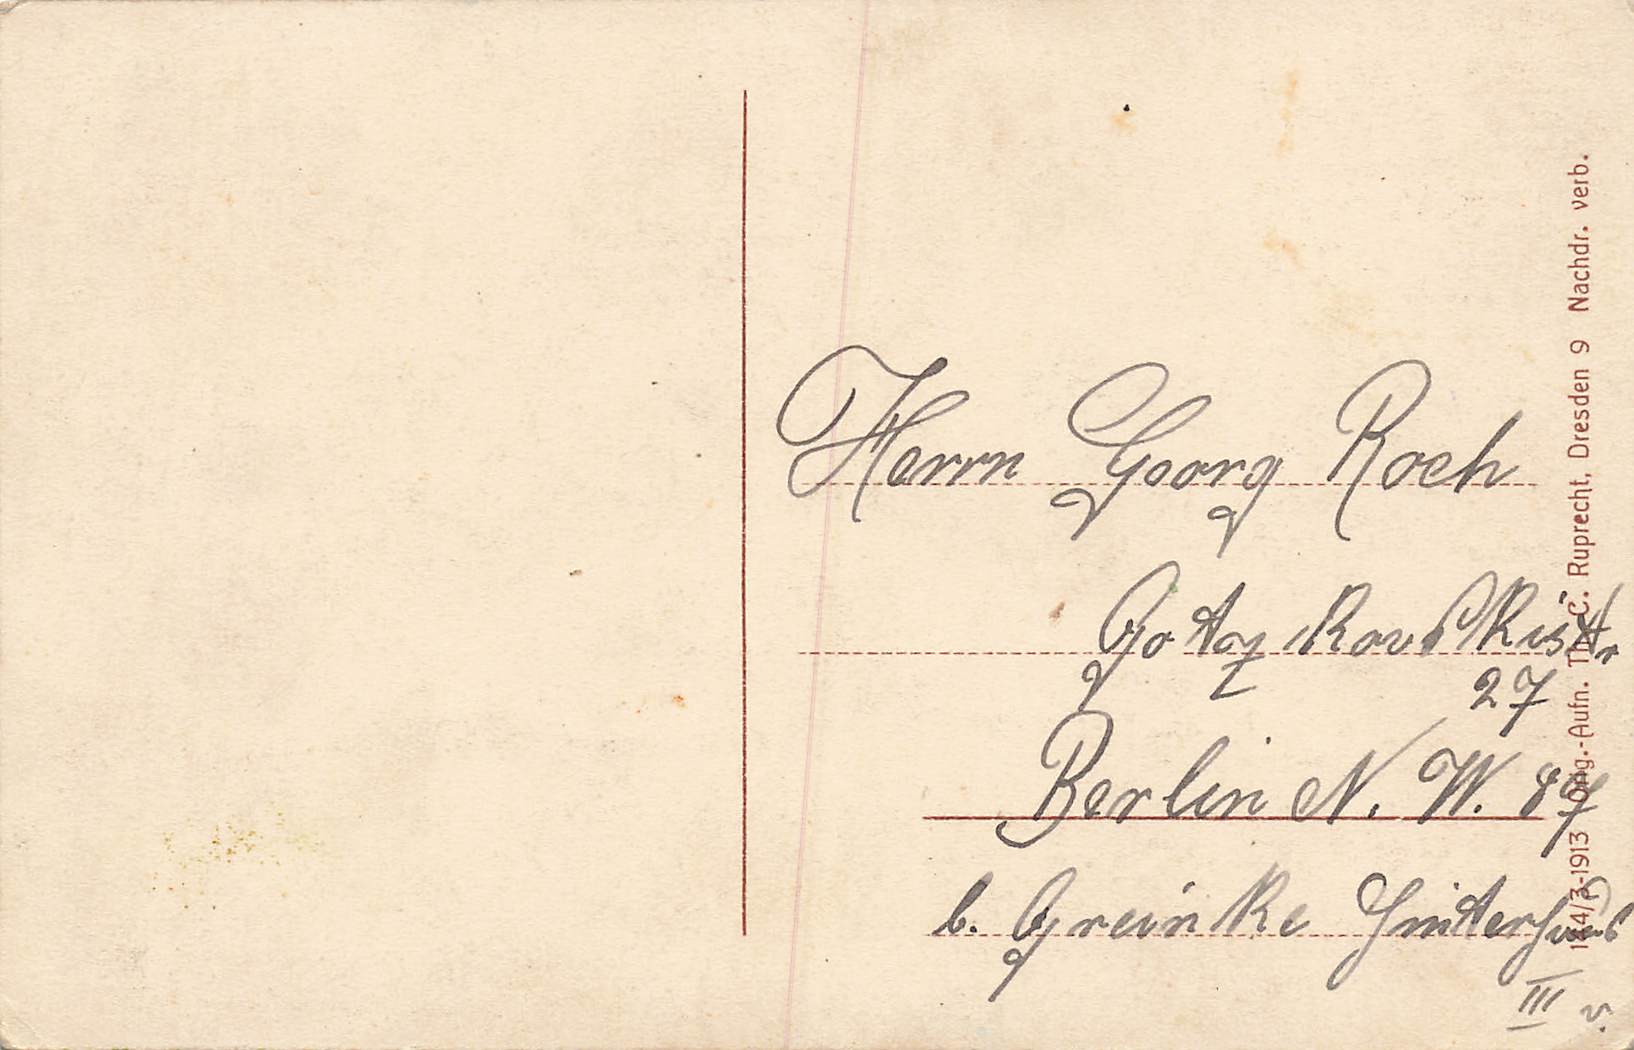 Herrn Georg Koch
Gotzkowskistr
27
Berlin N. W. 87
b. Greinke Hinterhaus
III v.
144/3-1913 Orig.-Aufn. Th. C. Ruprecht, Dresden 9 Nachdr. verb.